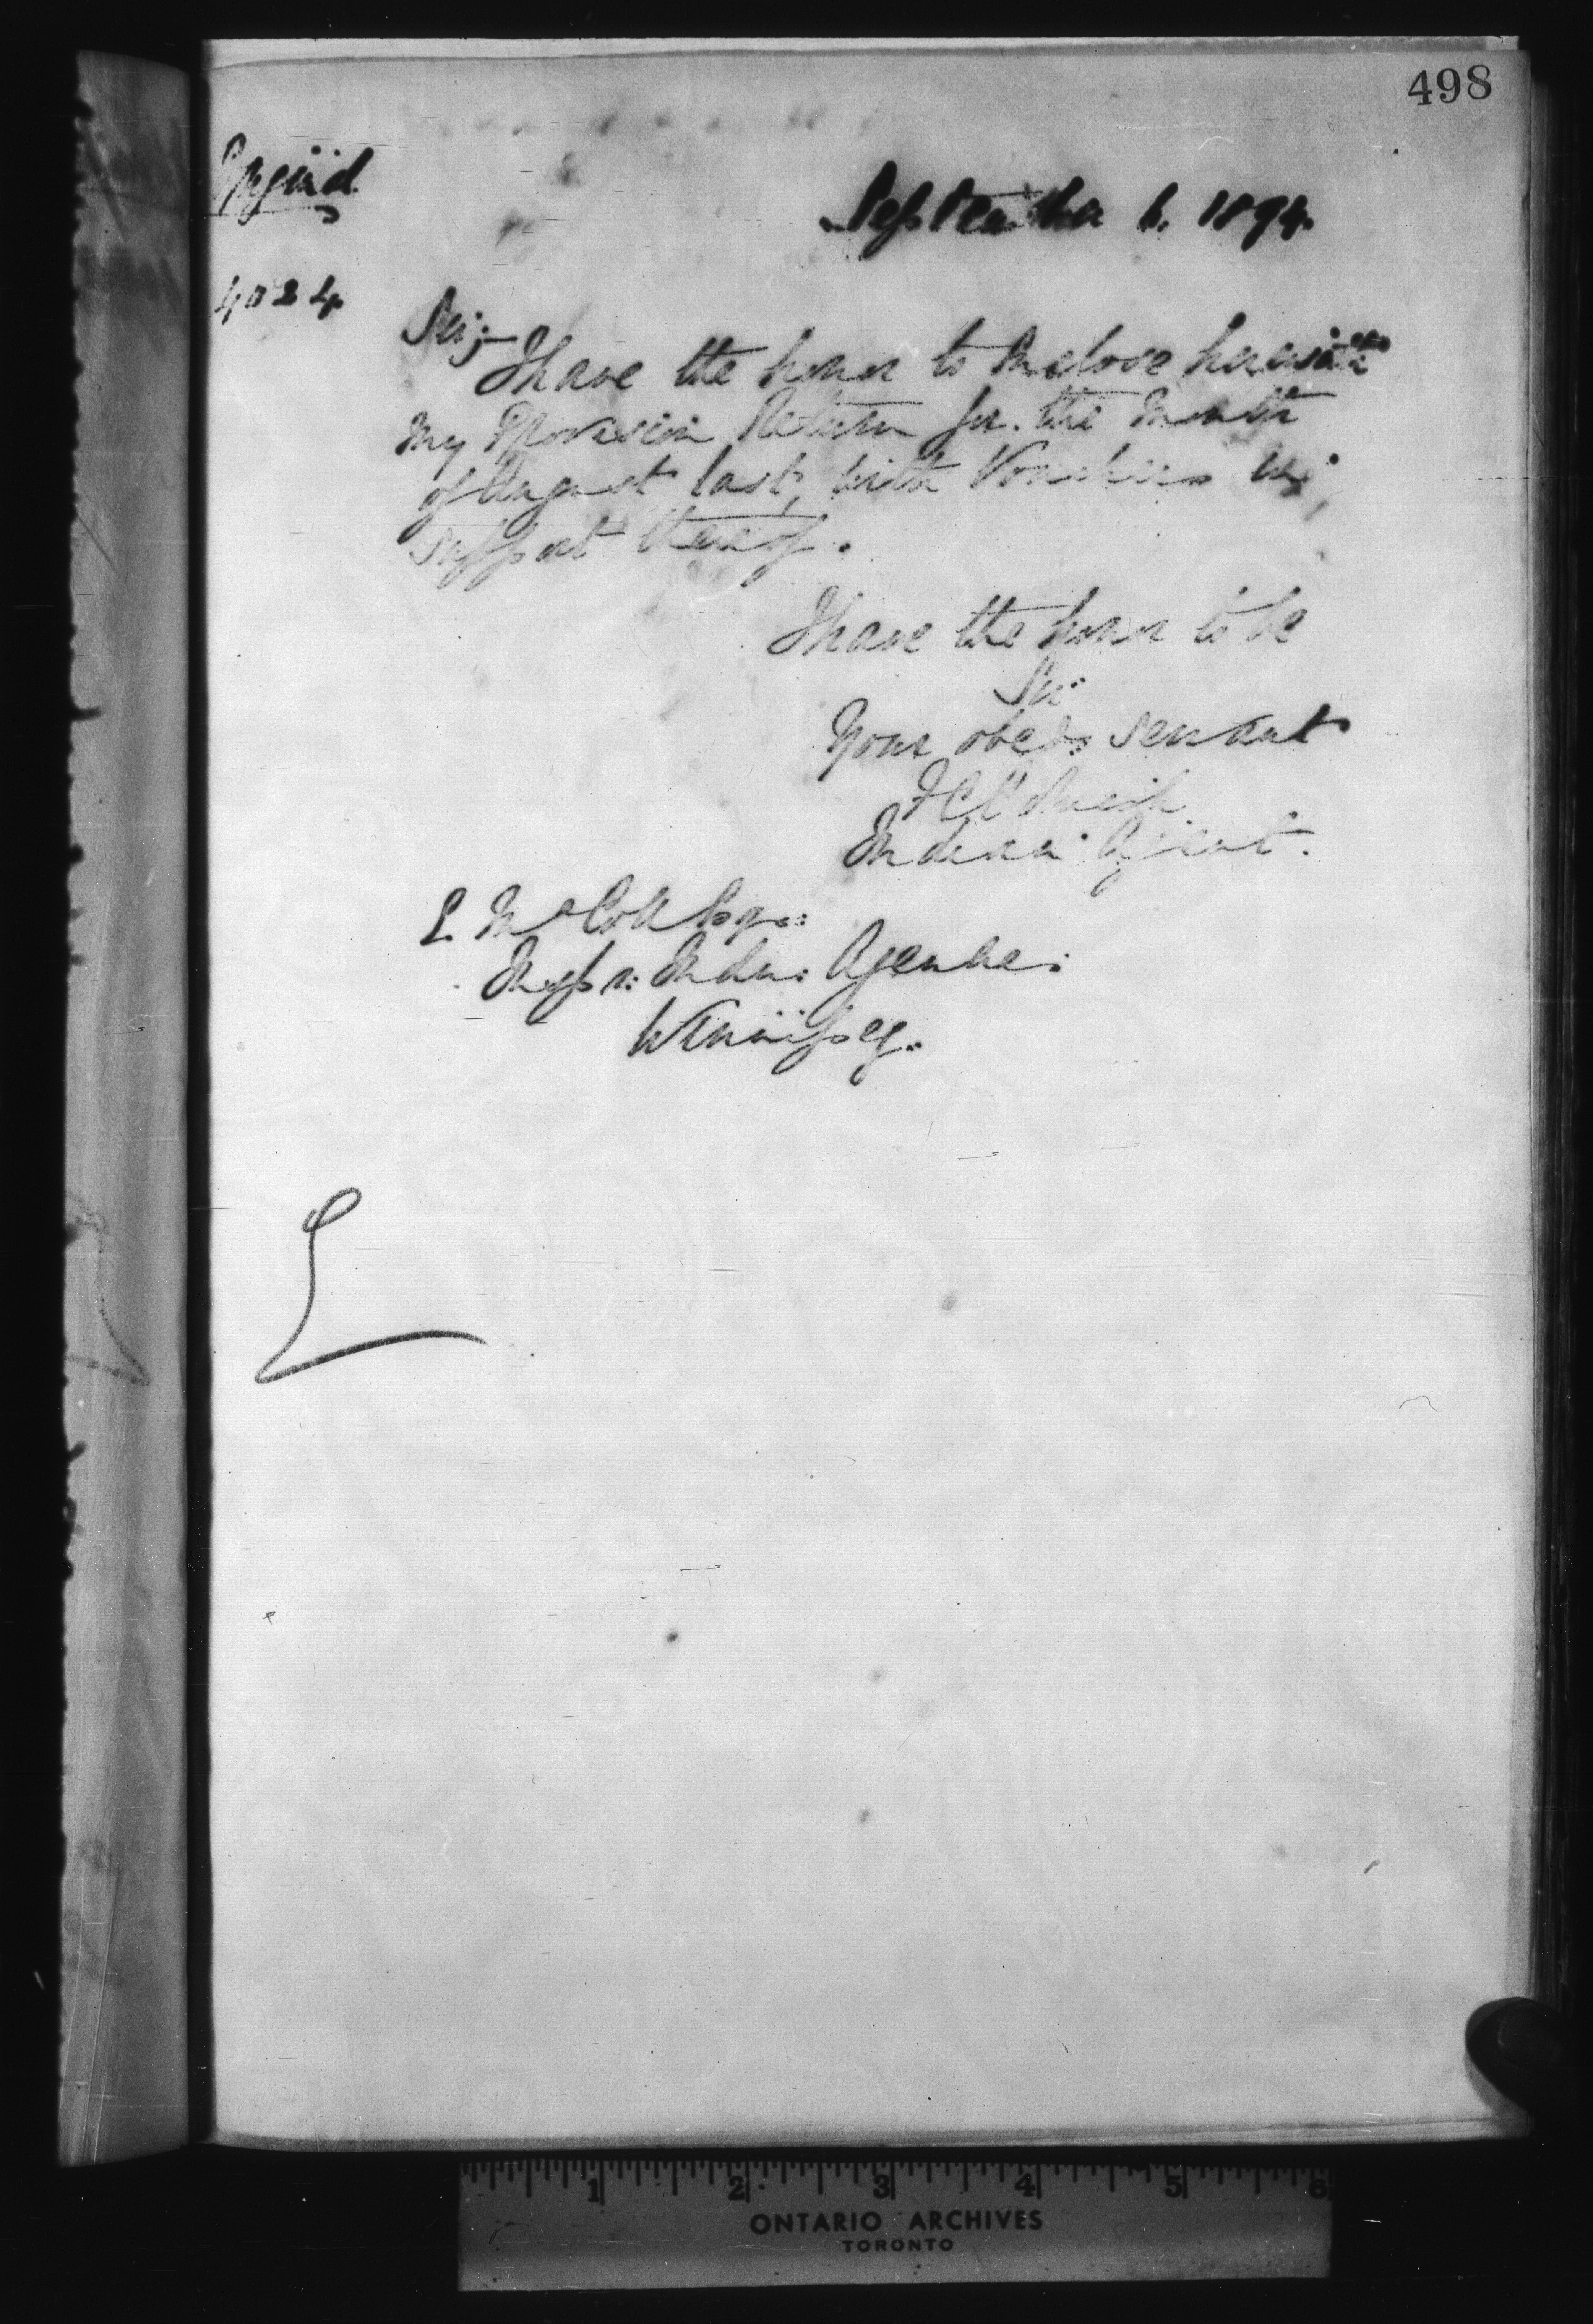 498
September 6. 1894.
4024
Sir;
I have the honor to Inclose herewith
my Provision Return for the Month
of August last, with Vouchers in
support thereof.
I have the honor to be
Sir
Your obed: servant
Indian Agent.
E. McColl Esq::
Inspr: Indn: Agencies:
Winnipeg.
1 2 3 4 5 6
ONTARIO ARCHIVES
TORONTO